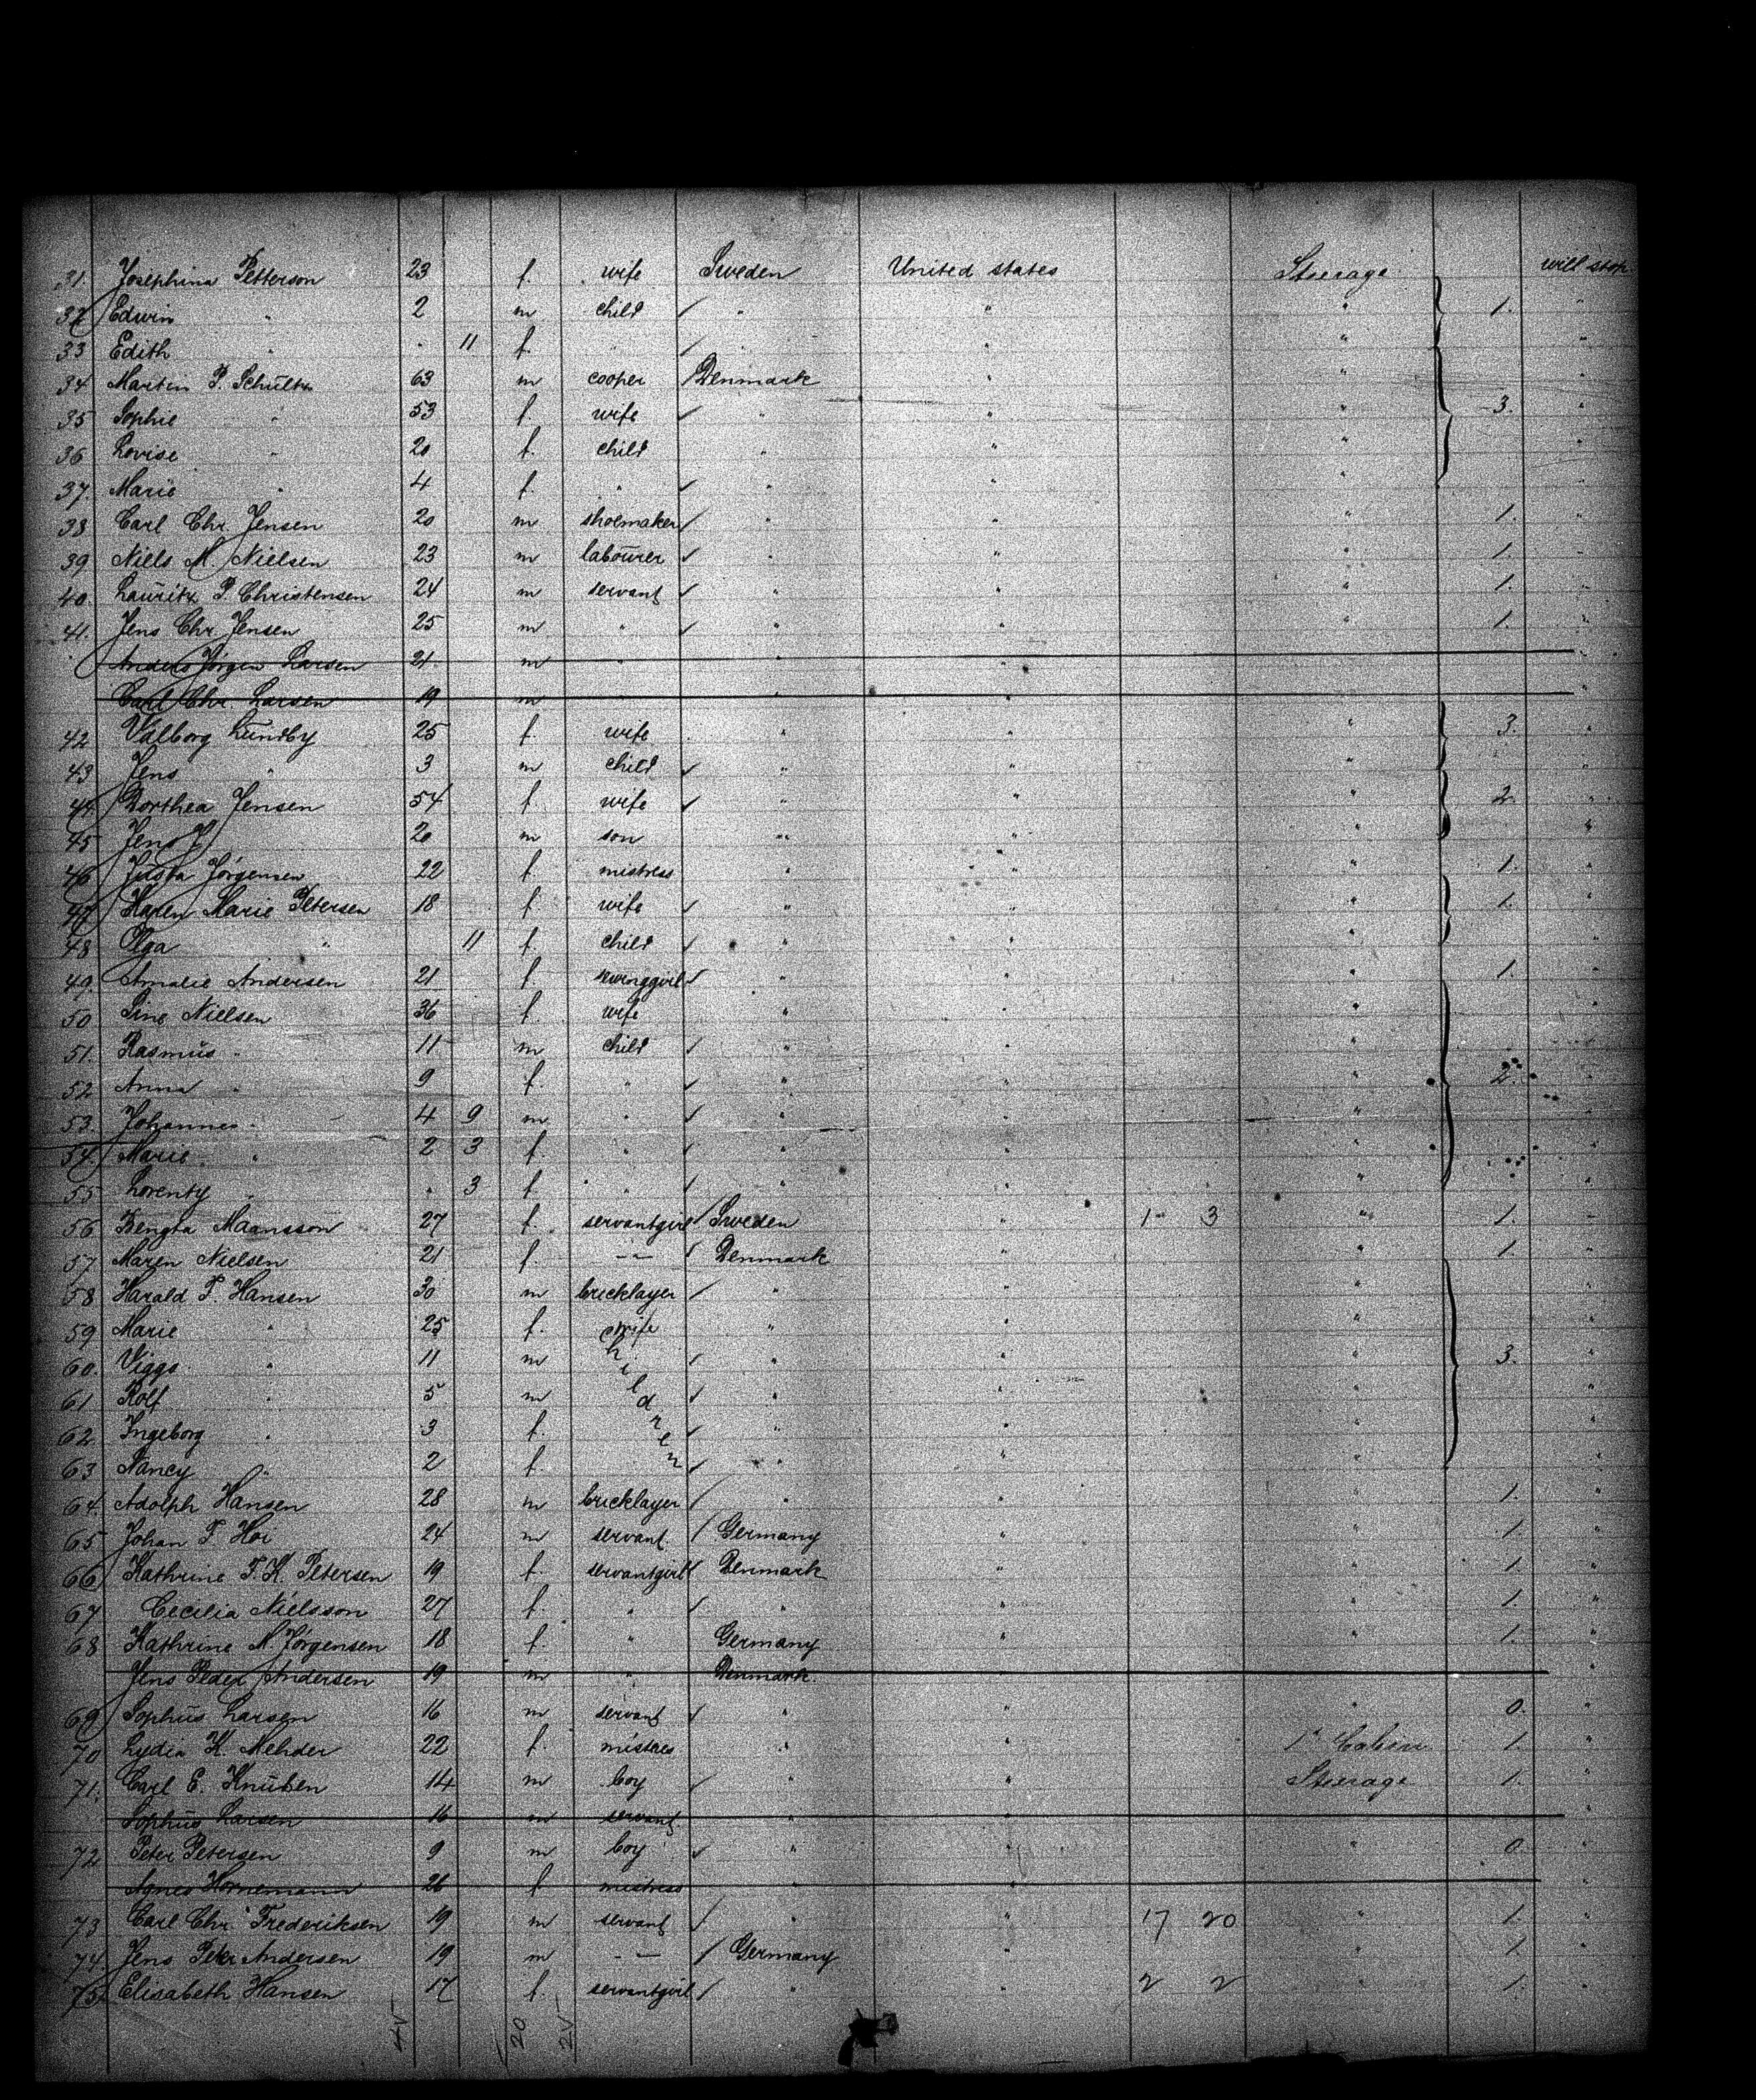 31. Josephina Petterson 23 f. wife Sweden United states Steerage will stop
32 Edwin " 2 m child " " " 1. "
33 Edith " " 11 f. " " " " "
34 Martin P. Schültz 63 m cooper Denmark " " "
35 Sophie " 53 f. wife " " " 3. "
36 Lovise " 20 f. child " " " "
37. Marie " 4 f. " " " " "
38 Carl Chr. Jensen 20 m shoemaker " " " 1. "
39 Niels M. Nielsen 23 m laboürer " " " 1. "
40. Laüritz P. Christensen 24 m servant " " " 1. "
41. Jens Chr. Jensen 25 m " " " " 1. "
Anders Jörgen Larsen 21. m " " " "
Carl Chr. Larsen 19 m " " " "
42 Valborg Lündby 25 f. wife " " " 3. "
43 Jens " 3 m child " " " "
44. Dorthea Jensen 54 f. wife " " " 2. "
45 Jens 20 m son " " " "
46 Jörgensen 22 f. mistress " " " 1. "
47 Karen Marie Petersen 18 f. wife " " " 1. "
48 Olga " 11 f. child " " " "
49. Amalie Andersen 21 f. sewinggirl " " " 1. "
50 Sine Nielsen 36 f. wife " " " "
51. Rasmüs " 11 m child " " " "
52 Anna " 9 f. " " " " 2. "
53. Johannes " 4 9 m " " " " "
54. Marie " 2 3 f. " " " " "
55 Lorenty " " 3 f " " " " "
56. Bengta Maansson 27 f. servantgirl Sweden " 1 3 " 1. "
57 Maren Nielsen 21 f. -"- Denmark " " 1. "
58 Harald P. Hansen 30 m bricklayer " " " "
59 Marie " 25 f. wife " " " "
60. Viggo " 11 m children " " " 3. "
61 Rolf " 5 m " " " "
62 Ingeborg " 3 f. " " " "
63 Nancy " 2 f. " " " "
64. Adolph Hansen 28 m bricklayer " " " 1. "
65 Johan Hoi 24 m servant Germany " " 1. "
66 Kathrine K. Petersen 19 f. servantgirl Denmark " " 1. "
67 Cecilia Nielsson 27 f. " " " " 1. "
68 Kathrine M. Jörgensen 18 f. " Germany " " 1. "
Jens Peder Andersen 19 m " Denmark. "
69 Sophüs Larsen 16 m servant " " " 0. "
70 Lydia K. Mehder 22 f. mistres " " 1" Cabin 1. "
71. Carl E. Knüdsen 14 m boy " " Steerage 1. "
Sophüs Larsen 16 m servant " " "
72 Peter Petersen 9 m boy " " " 0. "
Agnes Hornemann 26 f mistress " " "
73 Carl Chr. Frederiksen 19 m servant " " 17 20 " 1. "
74. Jens Peter Andersen 19 m -"- Germany " " 1. "
75. Elisabeth Hansen 17 f. servantgirl " " 2 2 " 1. "
20